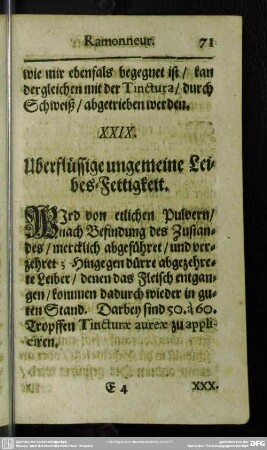 Ramonneur. 71
wie mir ebenfals begegnet ist / kan
dergleichen mit der Tinctura / durch
Schweiß / abgetrieben werden.
XXIX.
Uberflüssige ungemeine Lei-
bes-Fettigkeit.
WIrd von etlichen Pulvern /
nach Befindung des Zustan-
des / mercklich abgeführet / und ver-
zehret; Hingegen dürre abgezehre-
te Leiber / denen das Fleisch entgan-
gen / kommen dadurch wieder in gu-
ten Stand. Darbey sind 50. à 60.
Tropffen Tincturæ aureæ zu appli-
ciren.
E 4 XXX.